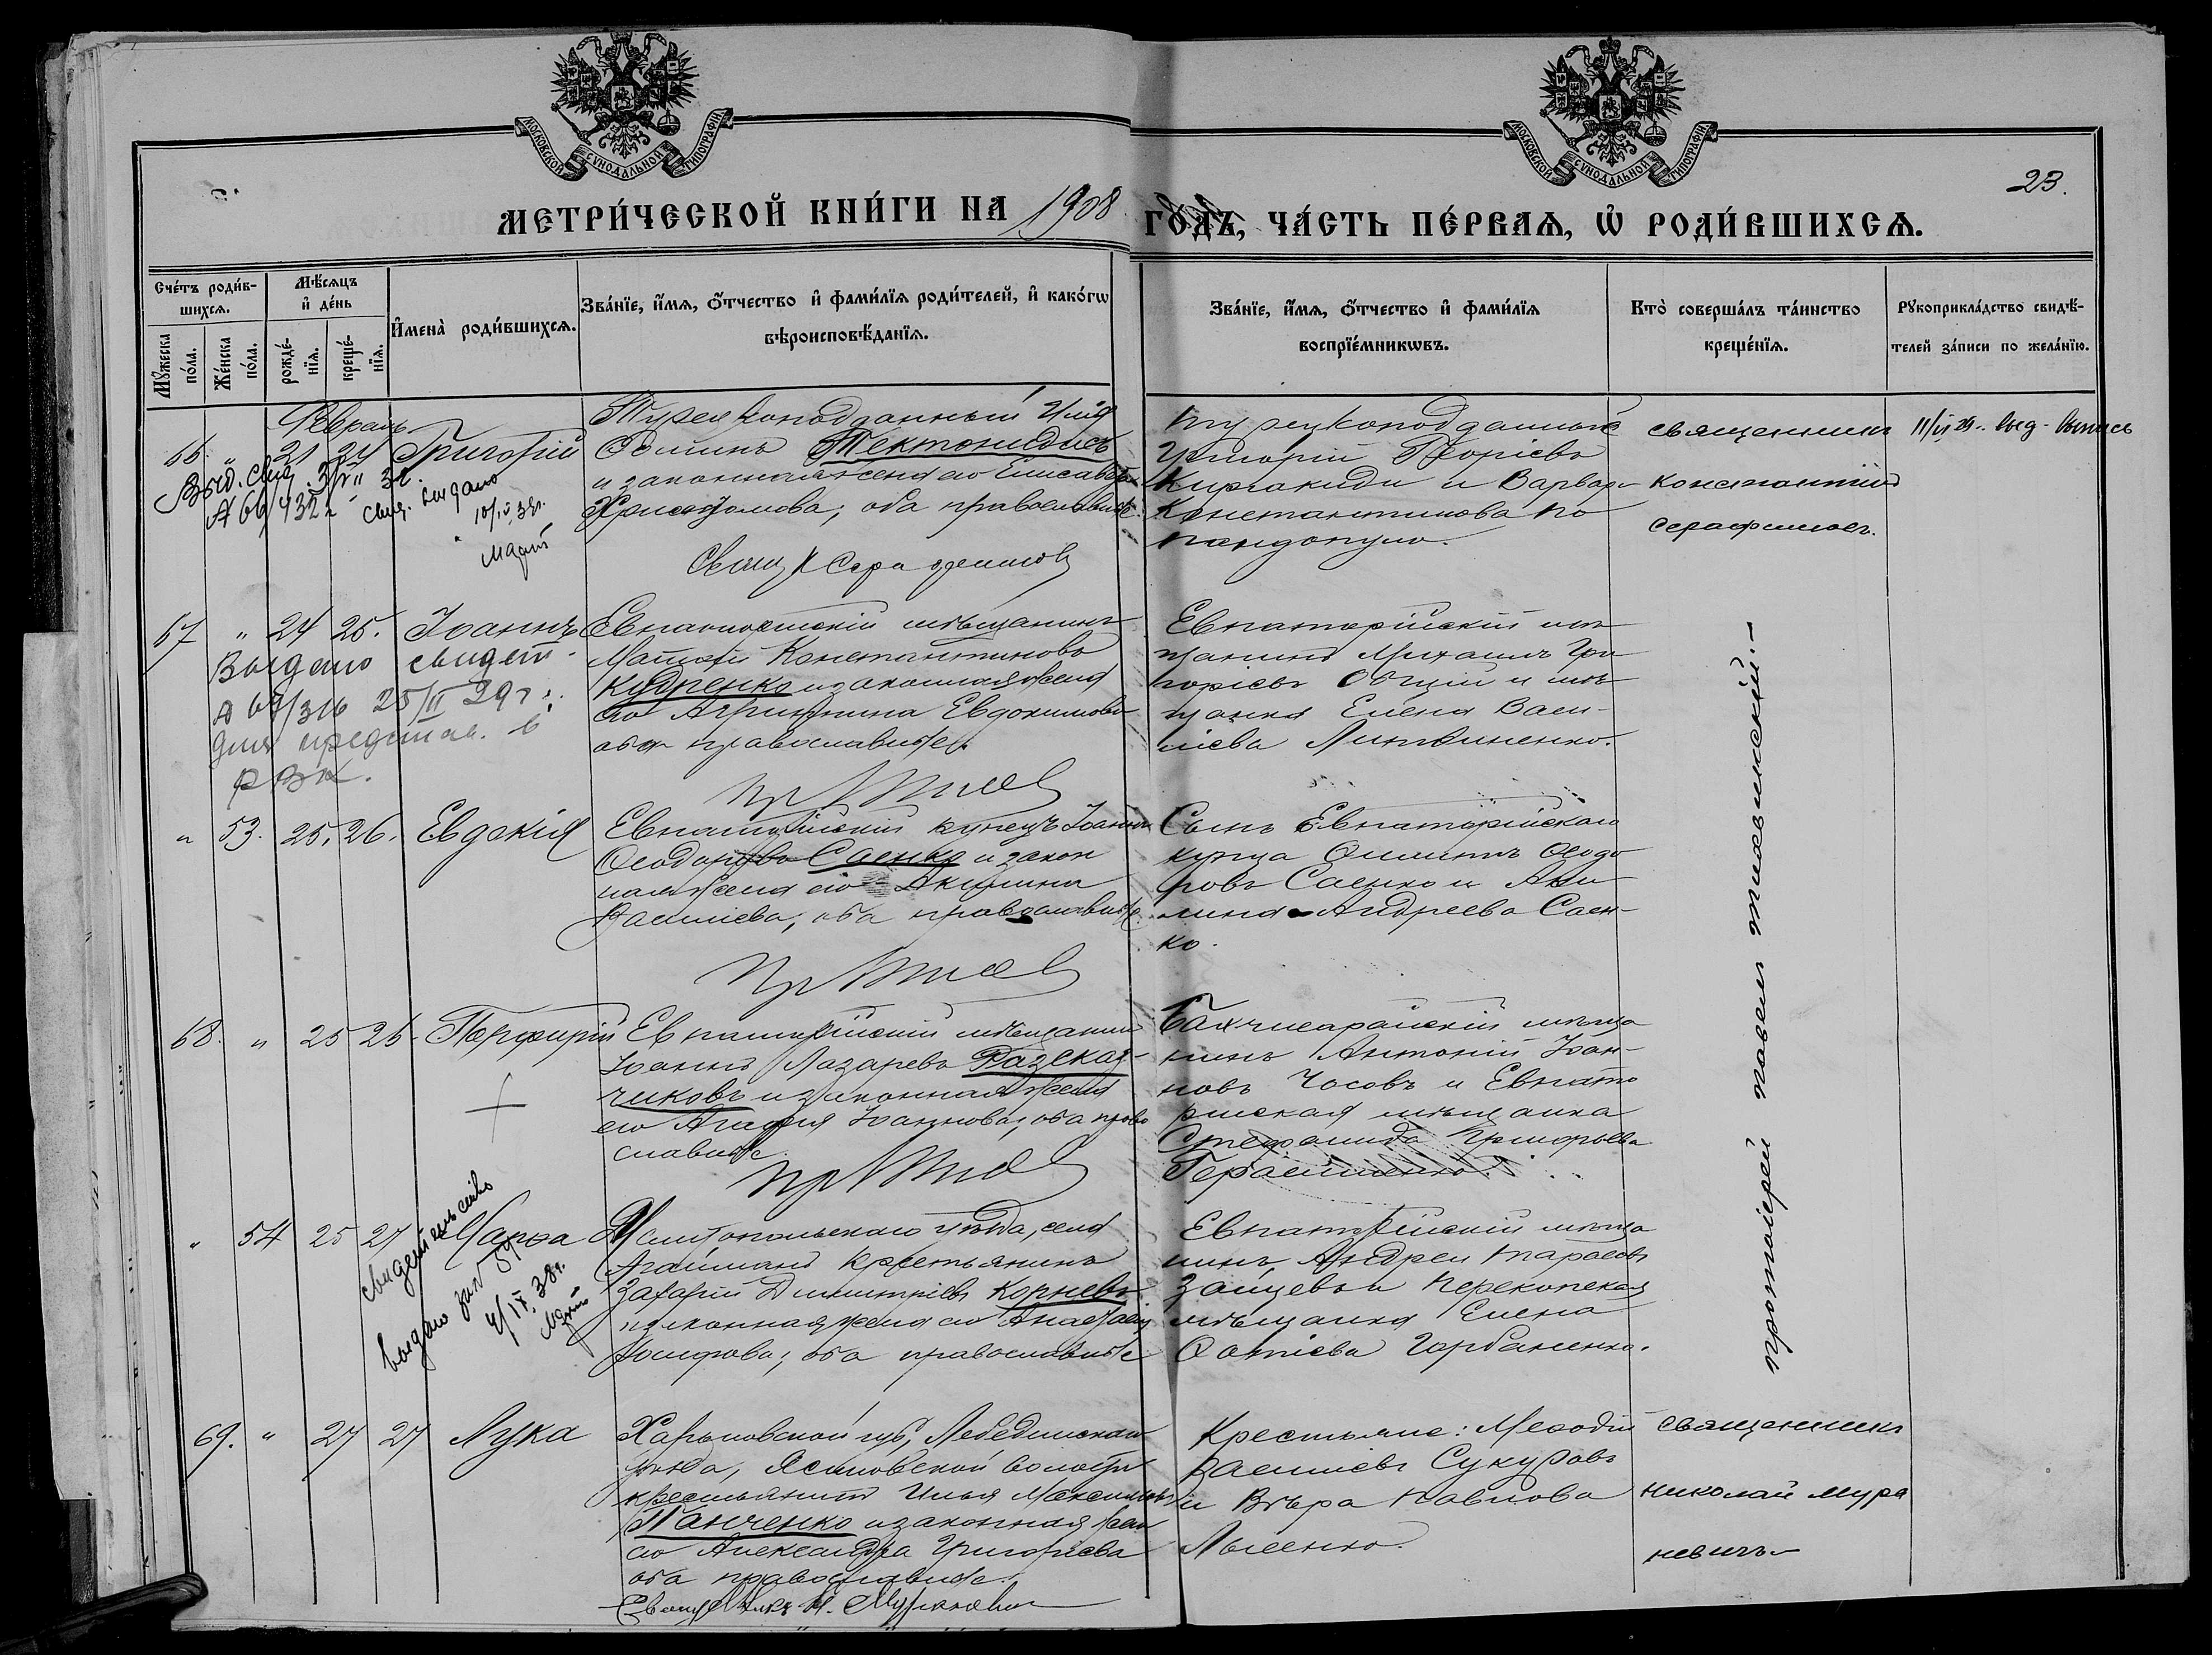 МОСКОВСКОЙ СУНОДАЛЬНОЙ ТИПОГРАФІИ
МОСКОВСКОЙ СУНОДАЛЬНОЙ ТИПОГРАФІИ
23.
МЕТРИ́ЧЕСКОЙ КНИ́ГИ НА 1908 ГО́ДЪ, ЧА́СТЬ ПЕ́РВАѦ, Ѡ҆ РОДИ́ВШИХСѦ.
Сче́тъ роди́в-
шихсѧ.
Мꙋ́жеска по́ла.
Же́нска по́ла.
Мѣ́сѧцъ
и҆ де́нь
рожде́-
нїѧ.
креще́-
нїѧ.
И҆мена̀ роди́вшихсѧ.
Зва́нїе, и҆́мѧ, ѻ҆́тчество и҆ фами́лїѧ роди́телей, и҆ како́гѡ
вѣроисповѣ́данїѧ.
Зва́нїе, и҆́мѧ, ѻ҆́тчество и҆ фами́лїѧ
воспрїе́мникѡвъ.
Кто̀ соверша́лъ та́инство
креще́нїѧ.
Рꙋкоприкла́дство свидѣ́-
телей за́писи по жела́нїю.
Февраль
66. " 21 24 Григорій
Турецкоподданный Илія
Ѳоминъ Тектонидисъ
и законная жена его Елисавета
Хрисостомова; оба православные.
Свящ К Серафимовъ
Турецкоподданные
Григорій Георгіевъ
Киріакиди и Варвара
Константинова По
пандопуло.
священникъ
Константинъ
Серафимовъ.
Выд. свид.
А 66/432
свид. выдано
67 " 24 25. Іоаннъ
Выдано свидет.
А 69/316 25/II 29 г.
для представ. в
РВК.
Евпаторійскій мѣщанинъ
Матѳей Константиновъ
Кудренко и законная жена
его Агриппина Евдокимова
оба православные.
Евпаторійскій мѣ
щанинъ Михаилъ Гри
горіевъ Общій и мѣ
щанка Елена Васи-
ліева Литвиненко.
" 53. 25. 26. Евдокія
Евпаторійскій купецъ Іоаннъ
Ѳеодоровъ Саенко и закон
ная жена его Акилина
Василіева; оба православные.
Сынъ Евпаторійскаго
купца Филиппъ Ѳеодо
ровъ Саенко и Аки
лина Андреева Саен-
ко.
протоіерей Павелъ Тихвинскій.
68. " 25 26. Порфирій
Евпаторійскій мѣщанинъ
Іоаннъ Лазаревъ Разсказ-
чиковъ и законная жена
его Агафія Іоаннова; оба право
славные.
Бахчисарайскій мѣща
нинъ Антоній Іоан-
новъ Часовъ и Евпато
рійская мѣщанка
Стефанида Григорьева
Герасименко.
" 54 25 27 Марѳа
свидетельство
выдано
Мелитопольскаго уѣзда, села
Агаймана крестьянинъ
Захарій Димитріевъ Корневъ
и законная жена его Анастасія
Іосифова; оба православные
Евпаторійскій мѣща
нинъ Андрей Тарасовъ
Зайцевъ и Перекопская
мѣщанка Елена
Фотіева Горбаненко.
69. " 27 27 Лука
Харьковской губ, Лебединскаго
уѣзда, Ясеновской волости
крестьянинъ Илья Максимовъ
Панченко и законная жена
его Александра Григоріева
оба православные.
Священникъ Н. Мураневич
Крестьяне: Меѳодій
Василіевъ Сукуровъ
и Вѣра Павлова
Лысенко.
священникъ
Николай Мура
невичъ.